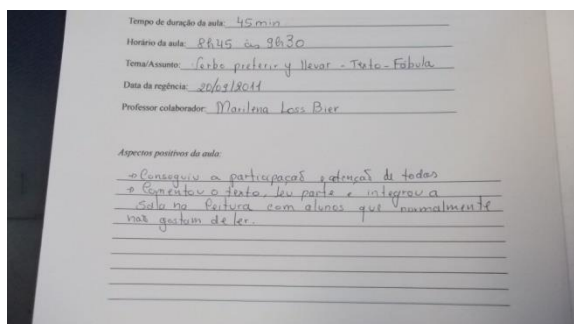 Tempo de duração da aula: 45 min.
Horário da aula: 8h45 às 9h30
Tema/Assunto: Verbo preferir y llevar - Texto - Fábula
Data da regência: 20/09/2011
Professor colaborador: Marilena Loss Bier
Aspectos positivos da aula:
→ Conseguiu a participaçaõ e atençaõ de todas
→ Comentou o texto, leu parte e integrou a
sala na leitura com alunos que normalmente
naõ gostam de ler.